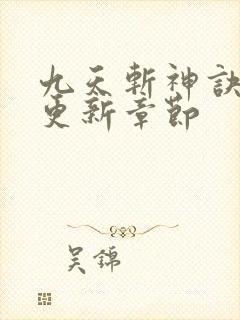 九天斬神訣
更新章節
吴錦